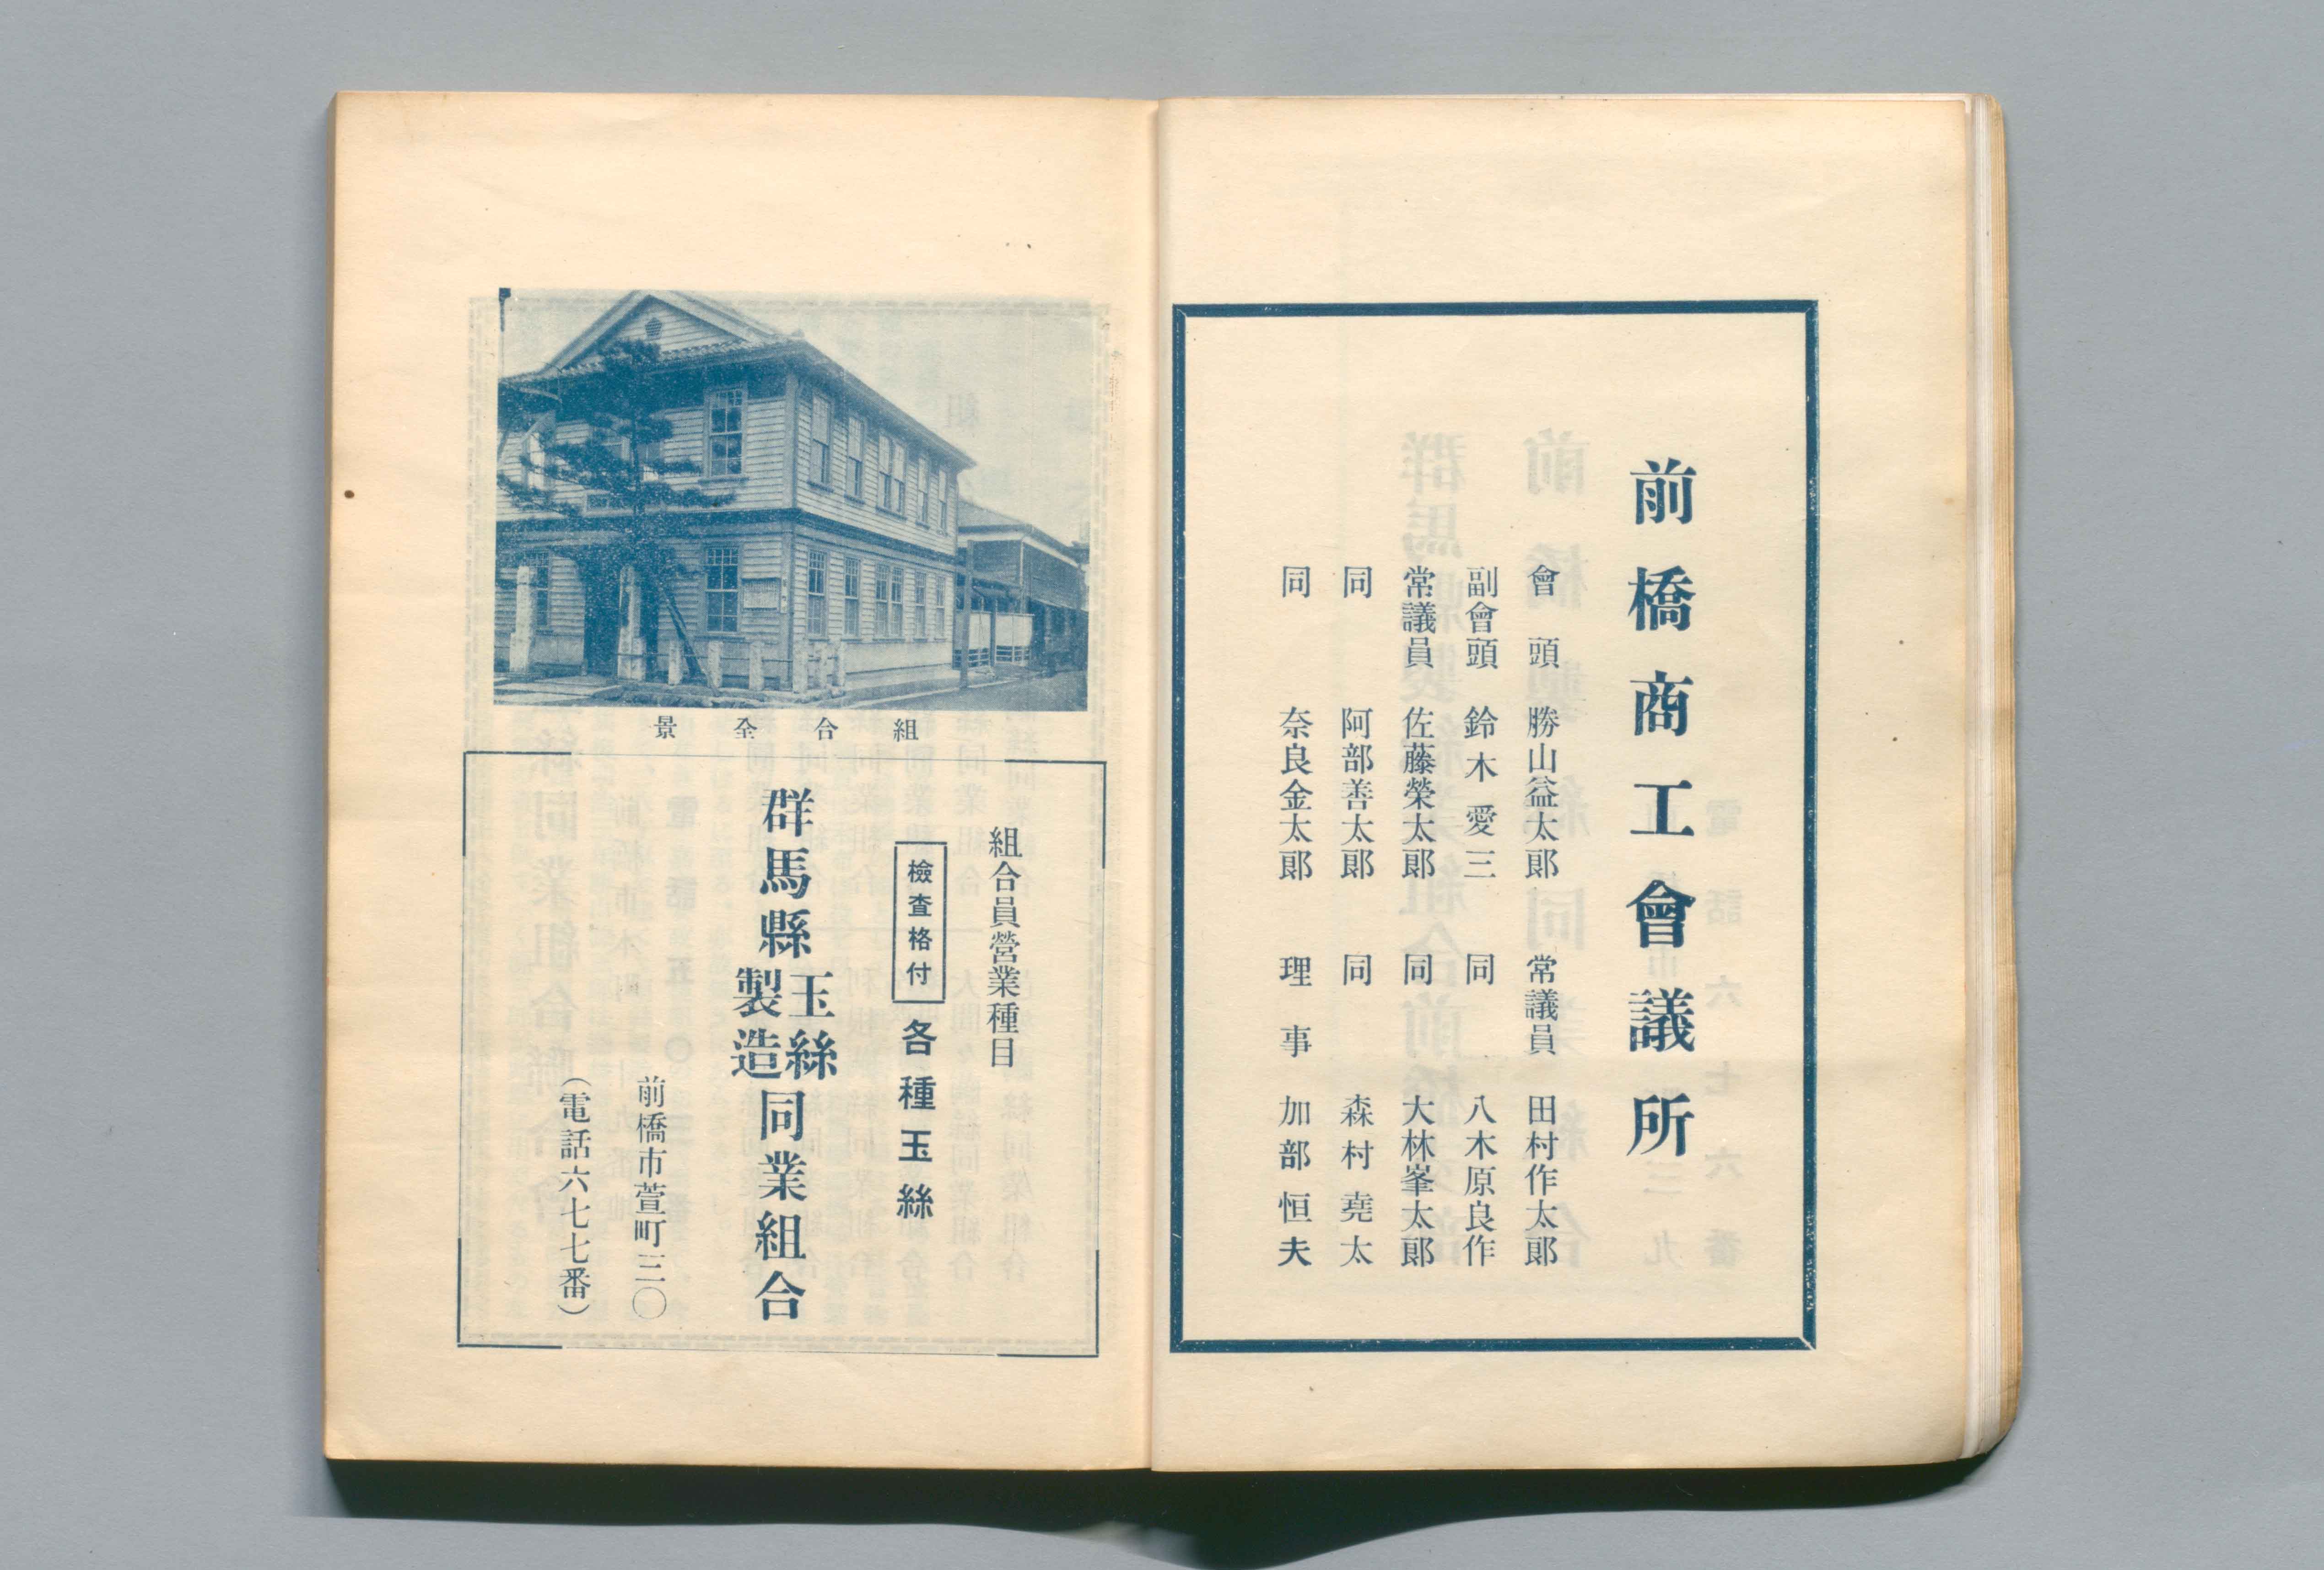 前橋商工會議所
會頭 勝山益太郎 常議員 田村作太郎
副會頭 鈴木愛三 同 八木原良作
常議員 佐藤榮太郎 同 大林峯太郎
同 阿部善太郎 同 森村堯太
同 奈良金太郎 理事 加部恒夫
組合全景
組合員營業種目
檢査格付 各種玉絲
群馬縣玉絲製造同業組合
前橋市萱町三〇
(電話六七七番)